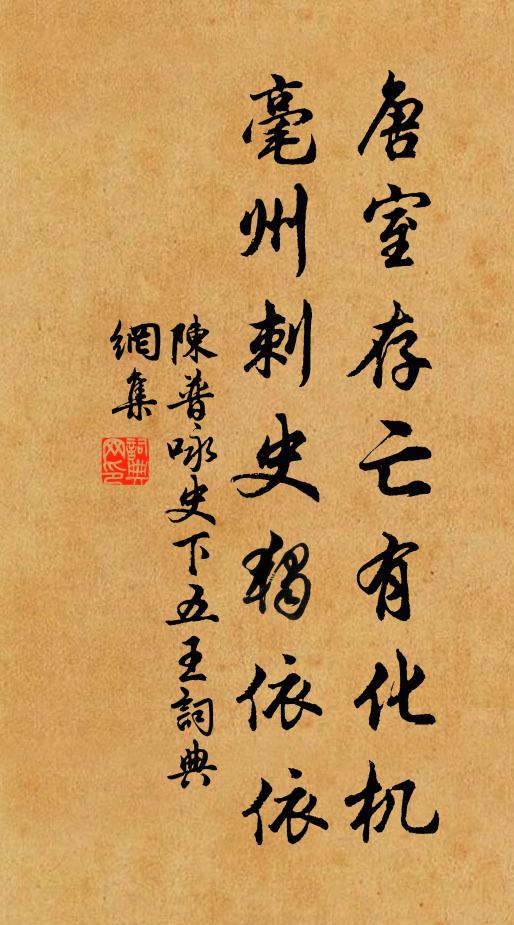 唐室存亡有化机
毫州刺史独依依
陳普咏史下五王詞典
網集
詞典
网印